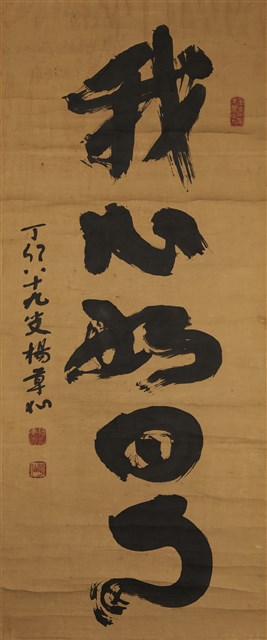 我心如日月
丁卯八十九叟楊草仙